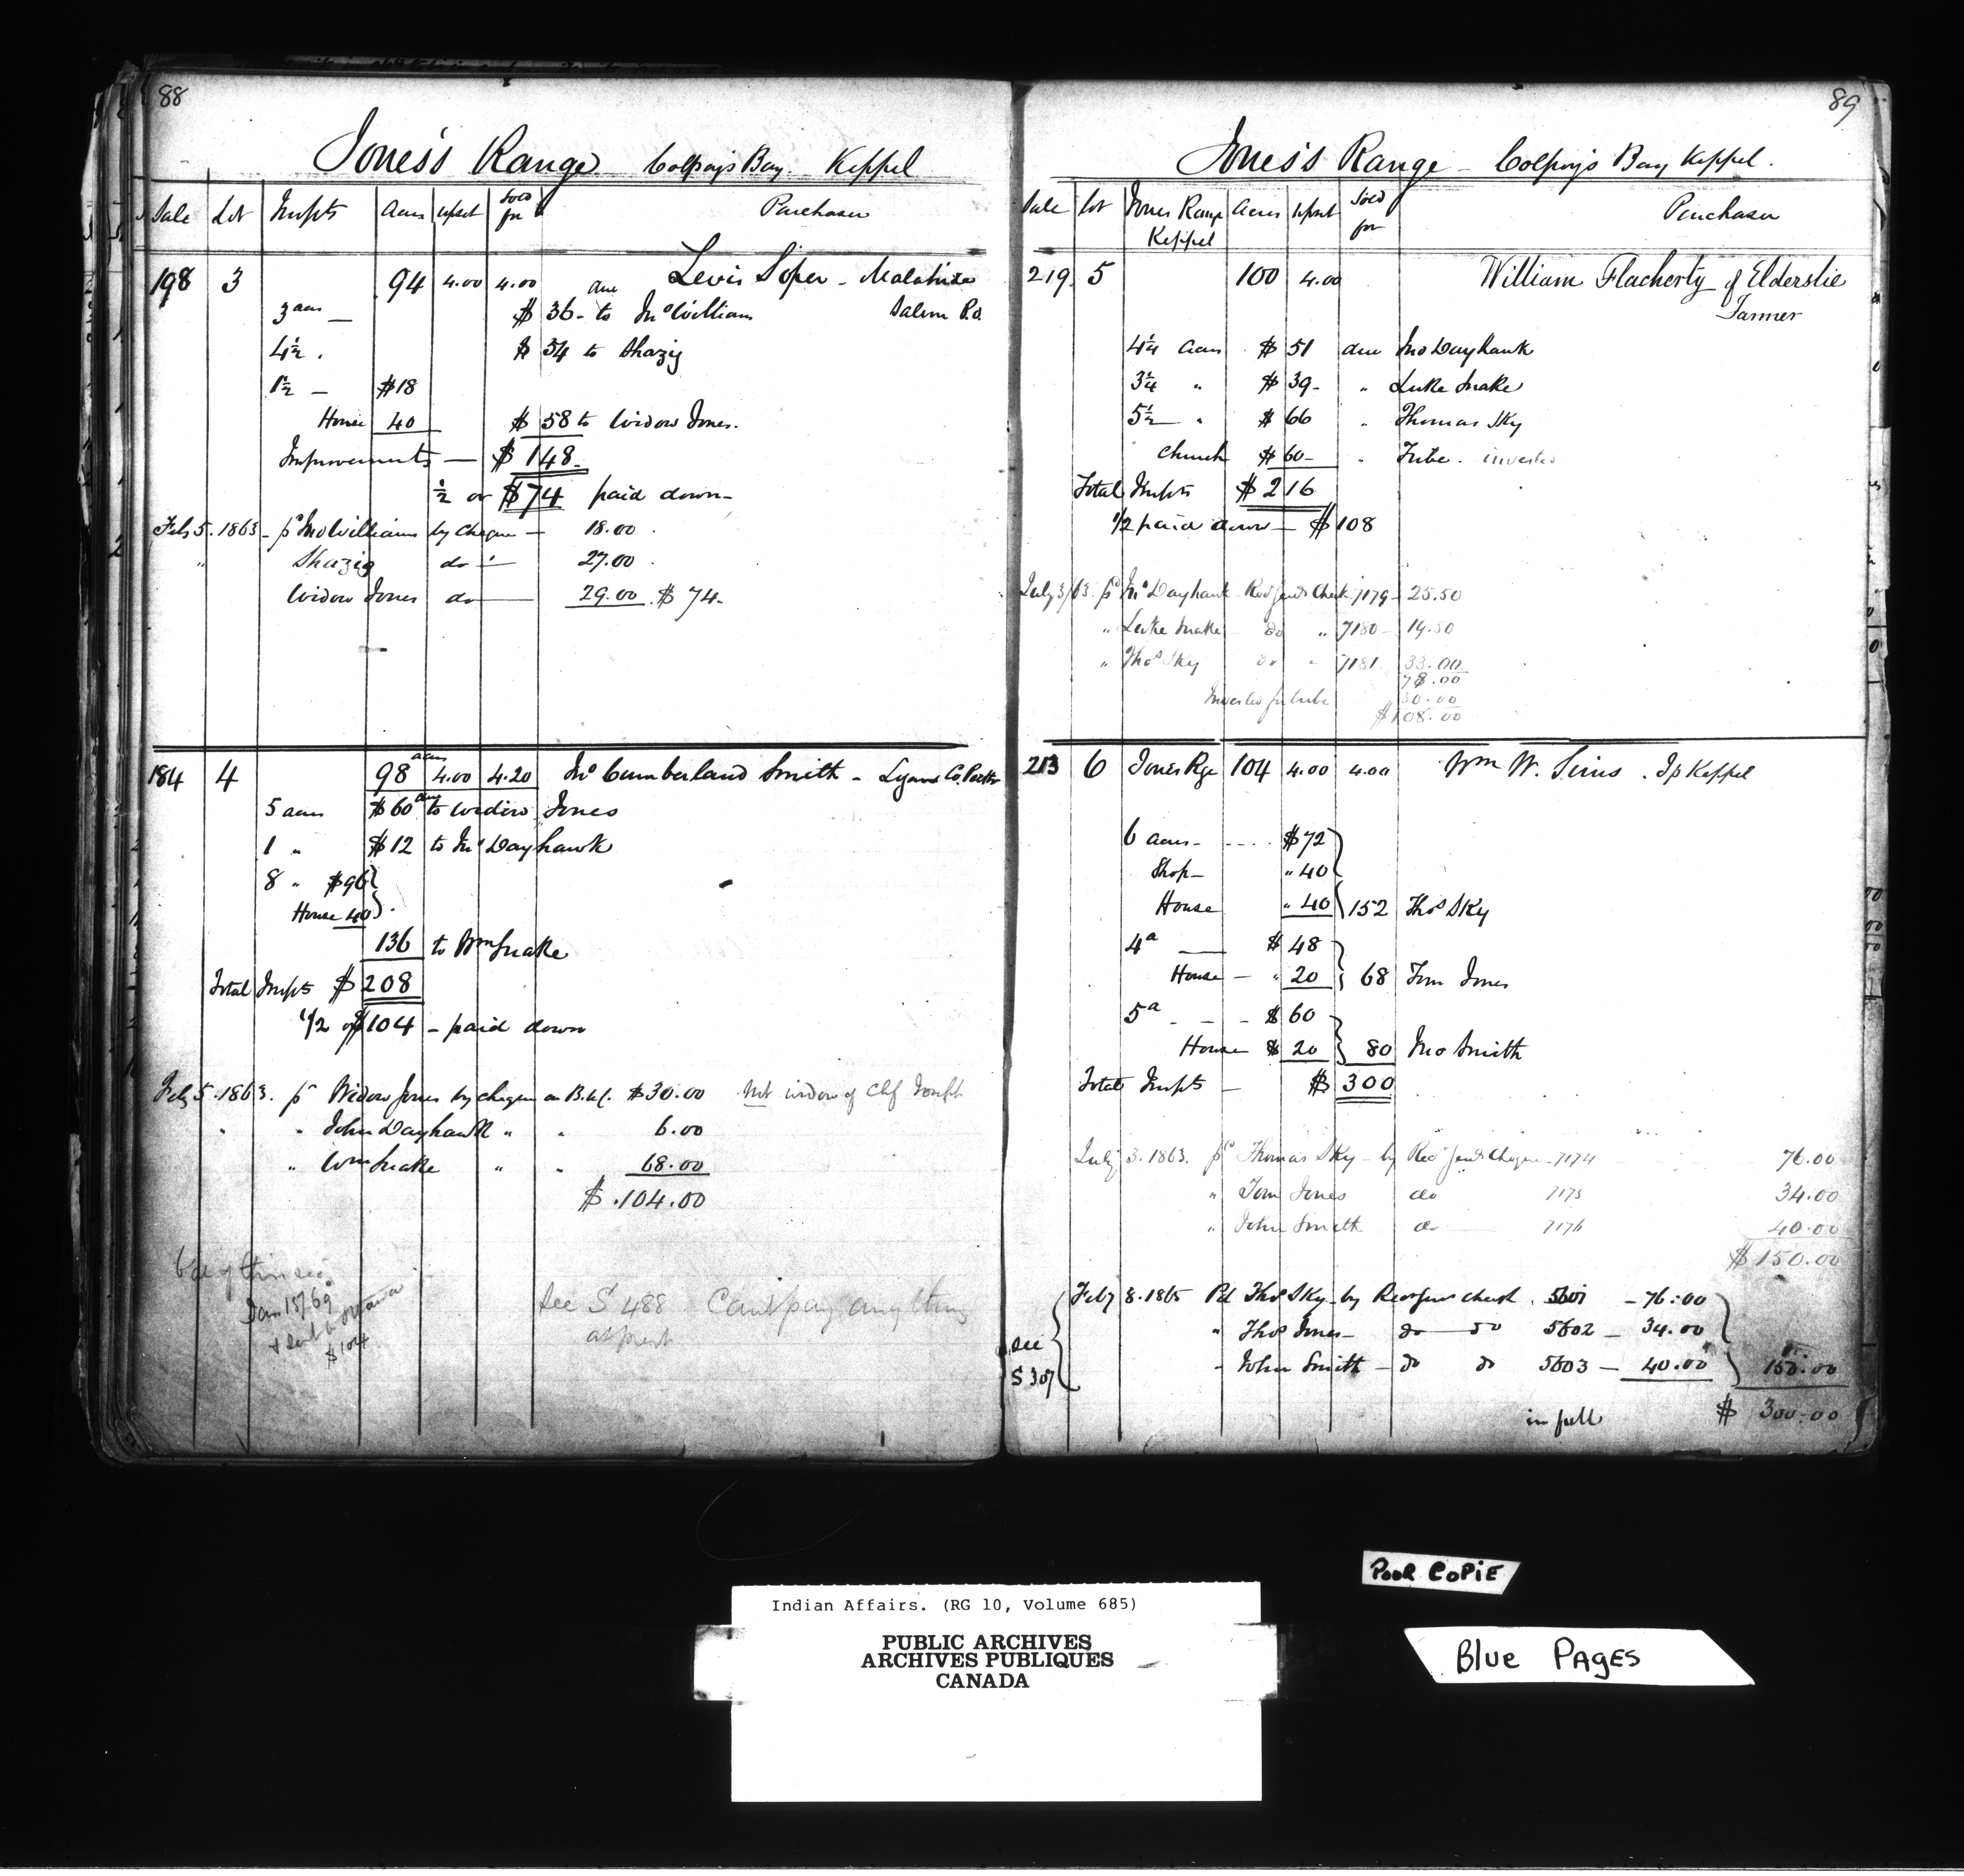 88
Jones's Range. Colpoys Bay. Keppel
Sale Lot Impts Acres Upset Sold for Purchaser
198 3 94 4.00 4.00 Lewis Soper - Malahide
3 acres — due $ 36 - to Jno Williams Salem P.O.
4½ . $ 54 to Shazig
1½ — $18
House 40 $ 58 to Widow Jones.
Improvements — $ 148.
½ or $74 paid down -
Feby 5. 1863 - pd Jno Williams by Cheque — 18.00
" Shazig do — 27.00
Widow Jones do — 29.00 $ 74-
184 4 98 acres 4.00 4.20 Jno Cumberland Smith -
5 acres $60 due to Widow Jones
1 " $12 to Jno Dayhawk
8 " $96
House 40
136 to Wm Snake
Total Impts $ 208
1/2 of $104 - paid down
Feby 5. 1863. pd Widow Jones by cheque on $30.00 Not widow of Chf Joseph
" " John Dayhawk " " 6.00
" Wm Snake " " 68.00
$ 104.00
Jan 15/69
& sent to Ottawa
$104
See S 488 Can't pay anything
at present
89
Jones's Range - Colpoys Bay Keppel.
Sale Lot Jones Range Keppel Acres Upset Sold for Purchaser
219 5 100 4.00 William Flacherty of Elderslie
Farmer
4¼ acres $ 51 due Jno Dayhawk
3¼ " $ 39- " Luke Snake
5½ " $ 66 " Thomas Sky
Church $ 60- " Tribe - invested
Total Impts $ 216
1/2 paid down — $ 108
July 3/63 pd Jno Dayhawk 7179 - 25.50
" Luke Snake do " 7180 - 19.50
" Thos Sky do " 7181 33.00
78.00
Invested for tribe 30.00
$108.00
213 6 Jones Rge 104 4.00 4.00 Wm W. Sims . Keppel
6 acres - .... $72
Shop - " 40
House " 40 152 Thos Sky
4a — $ 48
House - " 20 68 Tom Jones
5a - - - $ 60
House $ 20 80 Jno Smith
Total Impts — $ 300
July 3. 1863. pd Thomas Sky - by Cheque - 7174 76.00
" Tom Jones do 7175 34.00
" John Smith do 7176 40.00
$ 150.00
Feby 8. 1865 Pd Thos Sky - by check . 5601 - 76.00
" Thos Jones - do do 5602 - 34.00
see " John Smith - do do 5603 - 40.00 150.00
S 307
in full $ 300.00
POOR COPIE
Indian Affairs. (RG 10, Volume 685)
PUBLIC ARCHIVES
ARCHIVES PUBLIQUES
CANADA
Blue PAGES